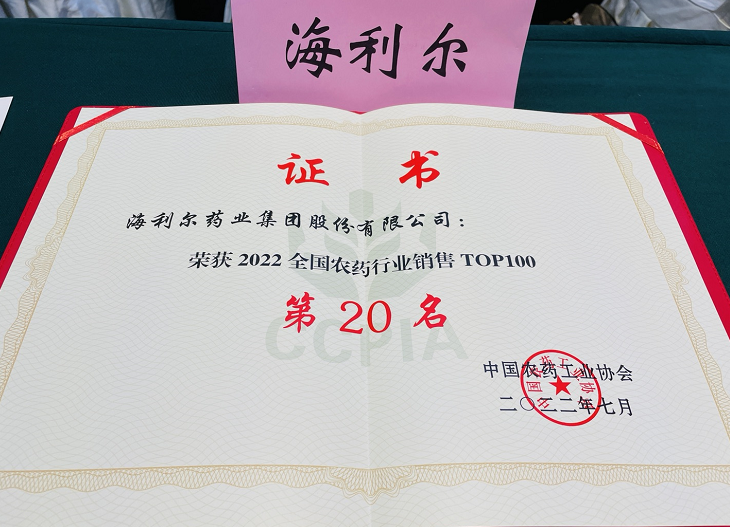 海利尔
证 书
海利尔药业集团股份有限公司：
荣获 2022 全国农药行业销售 TOP100
第 20 名
CCPIA
中国农药工业协会
二〇二二年七月
中国农药工业协会